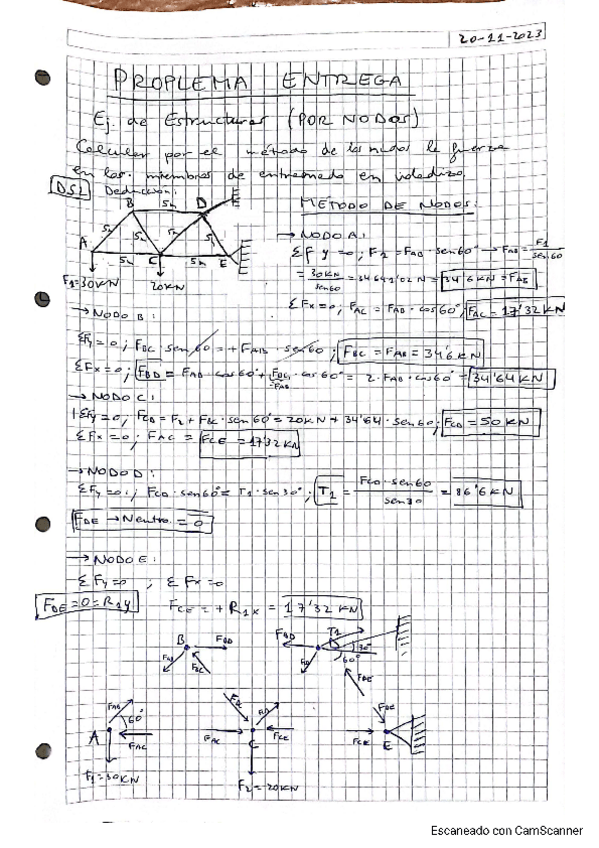 20-11-2023
PROPLEMA ENTREGA
Ej. de Estructuras (POR NODOS)
Calcular por el método de los nudos la fuerza
en los miembros de entramado en voladizo.
DSL Deducción:
MÉTODO DE NODOS:
B 5m D
5m 5m 5m 5m
A 5m C 5m E
F1=30KN 20KN
→ NODO A:
ΣFy=0; F1 = FAB · sen60° → FAB = F1/sen60
= 30KN/sen60 = 34641'02 N = 34'6 KN = FAB
ΣFx=0; FAC = FAB · cos60°; FAC = 17'32 KN
→ NODO B:
ΣFy=0; FBC · sen60 = + FAB · sen60; FBC = FAB = 34'6 KN
ΣFx=0; FBD = FAB · cos60° + FBC · cos60° = 2 · FAB · cos60° = 34'64 KN
=FAB
→ NODO C:
+ΣFy=0; FCD = F2 + FBC · sen60° = 20KN + 34'64 · sen60; FCD = 50 KN
ΣFx=0; FAC = FCE = 17'32 KN
→ NODO D:
ΣFy=0; FCD · sen60° = T1 · sen30°; T1 = FCD · sen60/sen30 = 86'6 KN
FDE → Neutro = 0
→ NODO E:
ΣFy=0 ; ΣFx=0
FDE=0=R1y FCE = + R1x = 17'32 KN
B FBD FAB FBC
FBD T1 D 30° 60° FDE
FAB 60° A FAC F1=30KN
FAC C FCE F2=20KN
FDE FCE E
Escaneado con CamScanner